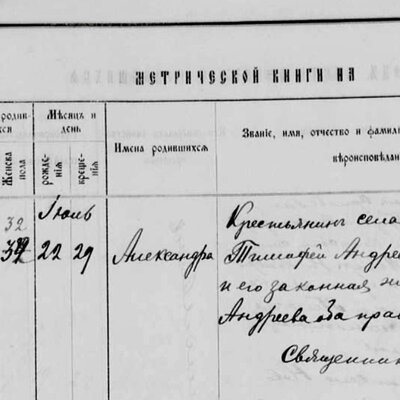 МЕТРИЧЕСКОЙ КНИГИ НА
родив-
хся
Женска
пола
Мѣсяцъ и
день
рожде-
нія
креще-
нія
Имена родившихся
Званіе, имя, отчество и фамил
вѣроисповѣдан
32
Іюль
22 29
Александра
Крестьянинъ села
Тимофей Андре
и его законная ж
Андреева оба прав
Священник